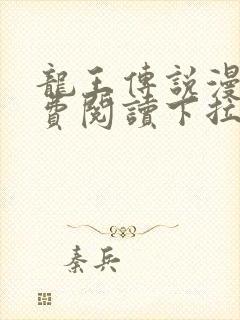 龍王傳說漫
費閱讀下拉
秦兵